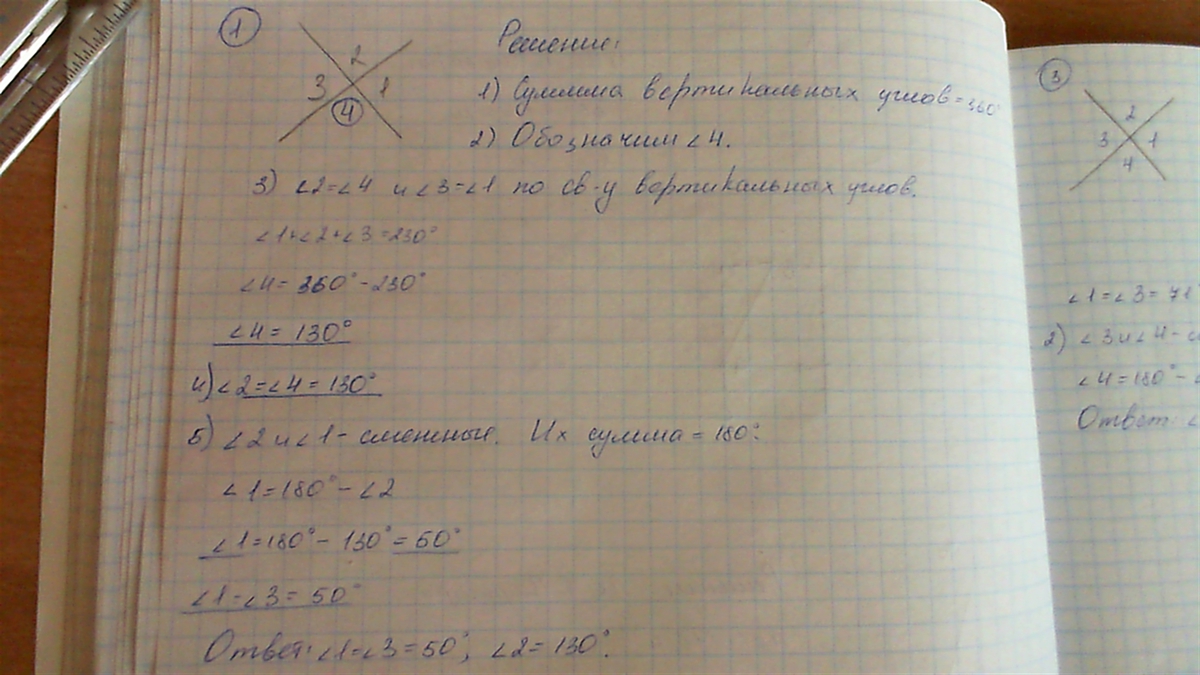 1
2
3
1
4
Решение:
1) Сумма вертикальных углов=360°
2) Обозначим ∠4.
3) ∠2=∠4 и ∠3=∠1 по св-у вертикальных углов.
∠1+∠2+∠3=230°
∠4=360°-230°
∠4=130°
4) ∠2=∠4=130°
5) ∠2 и ∠1-смежные. Их сумма=180°.
∠1=180°-∠2
∠1=180°-130°=50°
∠1=∠3=50°
Ответ: ∠1=∠3=50°, ∠2=130°.
3
2
3
1
4
∠1=∠3=71°
2) ∠3 и ∠4-
∠4=180°-∠
Ответ: ∠